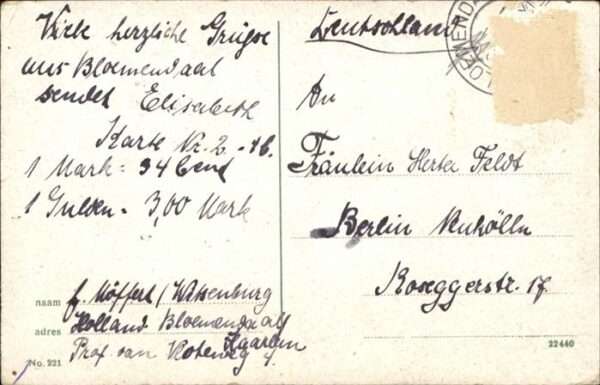 Viele herzliche Grüsse
aus Bloemendaal
sendet Elisabeth
Karte Nr. 2.
1 Mark = 34 Cend
1 Gulden = 3,00 Mark
naam
adres Holland Bloemendaal
Haarlem
Prof. van
No. 221
Deutschland
LOEMEND
An
Fräulein Herta Feldt
Berlin Neukölln
Roseggerstr. 17
22440